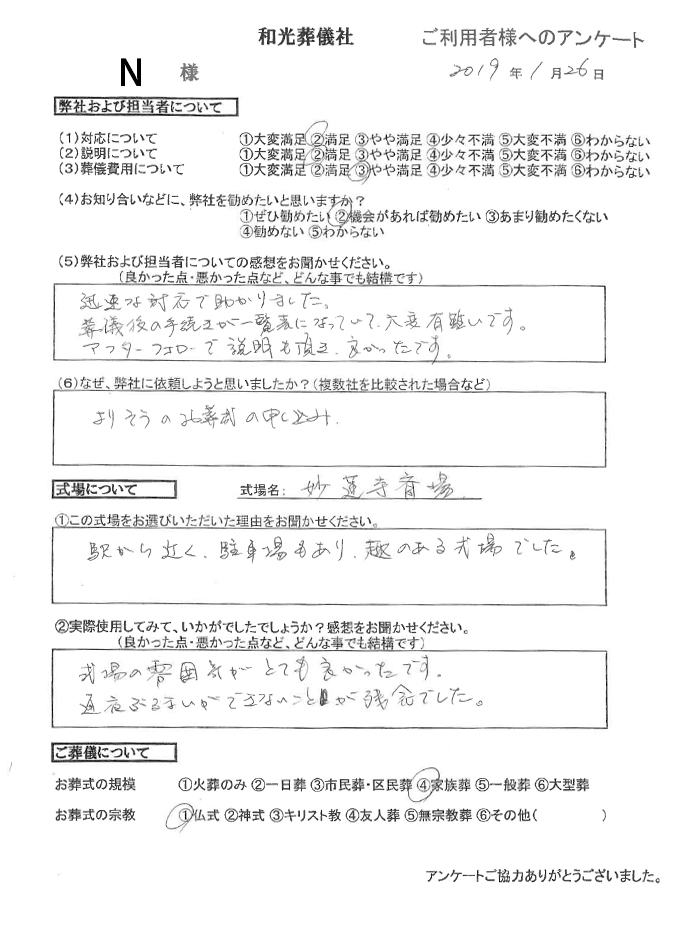 和光葬儀社 ご利用者様へのアンケート
N 様 2019年1月26日
弊社および担当者について
(1)対応について ①大変満足 ②満足 ③やや満足 ④少々不満 ⑤大変不満 ⑥わからない
(2)説明について ①大変満足 ②満足 ③やや満足 ④少々不満 ⑤大変不満 ⑥わからない
(3)葬儀費用について ①大変満足 ②満足 ③やや満足 ④少々不満 ⑤大変不満 ⑥わからない
(4)お知り合いなどに、弊社を勧めたいと思いますか？
①ぜひ勧めたい ②機会があれば勧めたい ③あまり勧めたくない
④勧めない ⑤わからない
(5)弊社および担当者についての感想をお聞かせください。
(良かった点・悪かった点など、どんな事でも結構です)
迅速な対応で助かりました。
葬儀後の手続きが一覧表になっていて、大変有難いです。
アフターフォローで説明も頂き、良かったです。
(6)なぜ、弊社に依頼しようと思いましたか？(複数社を比較された場合など)
よりそうのお葬式の申し込み.
式場について 式場名: 妙蓮寺斎場
①この式場をお選びいただいた理由をお聞かせください。
駅から近く、駐車場もあり、趣のある式場でした。
②実際使用してみて、いかがでしたでしょうか？感想をお聞かせください。
(良かった点・悪かった点など、どんな事でも結構です)
式場の雰囲気がとても良かったです。
通夜ぶるまいができないことが残念でした。
ご葬儀について
お葬式の規模 ①火葬のみ ②一日葬 ③市民葬・区民葬 ④家族葬 ⑤一般葬 ⑥大型葬
お葬式の宗教 ①仏式 ②神式 ③キリスト教 ④友人葬 ⑤無宗教葬 ⑥その他( )
アンケートご協力ありがとうございました。